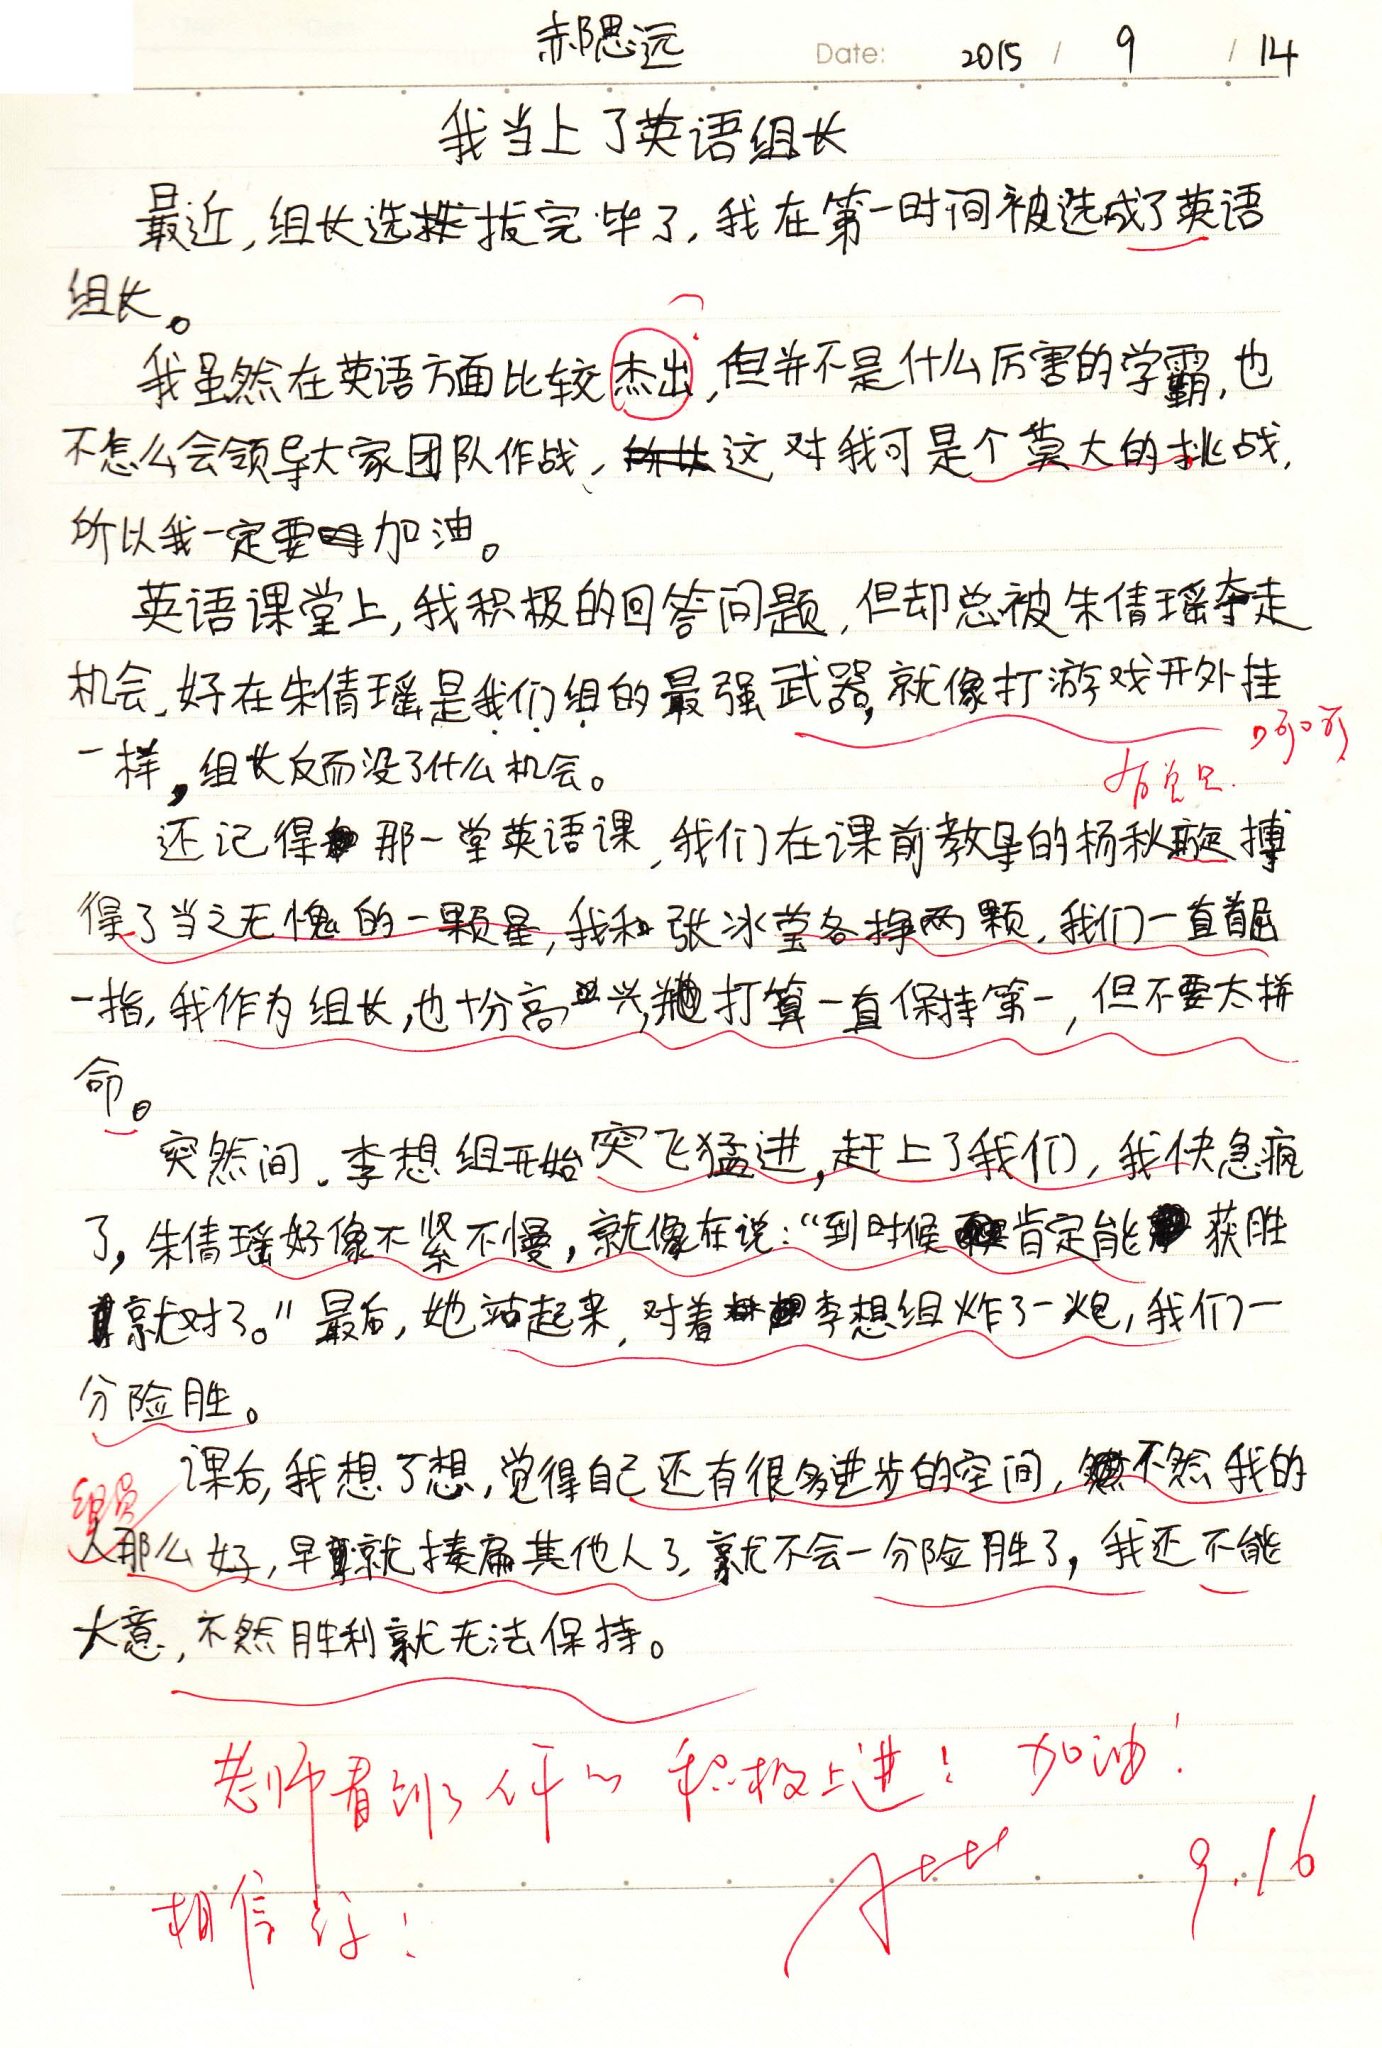 郝思远 Date: 2015 / 9 / 14
我当上了英语组长
最近,组长选拔完毕了,我在第一时间被选成了英语
组长。
我虽然在英语方面比较杰出,但并不是什么厉害的学霸,也
不怎么会领导大家团队作战,这对我可是个莫大的挑战,
所以我一定要加油。
英语课堂上,我积极的回答问题,但却总被朱倩瑶夺走
机会,好在朱倩瑶是我们组的最强武器,就像打游戏开外挂
一样,组长反而没了什么机会。
呵呵
有意思.
还记得那一堂英语课,我们在课前教导的杨秋璇搏
得了当之无愧的一颗星,我和张冰莹各挣两颗,我们一直首屈
一指,我作为组长,也十分高兴,打算一直保持第一,但不要太拼
命。
突然间,李想组开始突飞猛进,赶上了我们,我快急疯
了,朱倩瑶好像不紧不慢,就像在说:“到时候肯定能获胜
就对了。”最后,她站起来,对着李想组炸了一炮,我们一
分险胜。
课后,我想了想,觉得自己还有很多进步的空间,不然我的
组员
人那么好,早就揍扁其他人了,就不会一分险胜了,我还不能
大意,不然胜利就无法保持。
老师看到了你的积极上进!加油!
相信你!
A++ 9.16